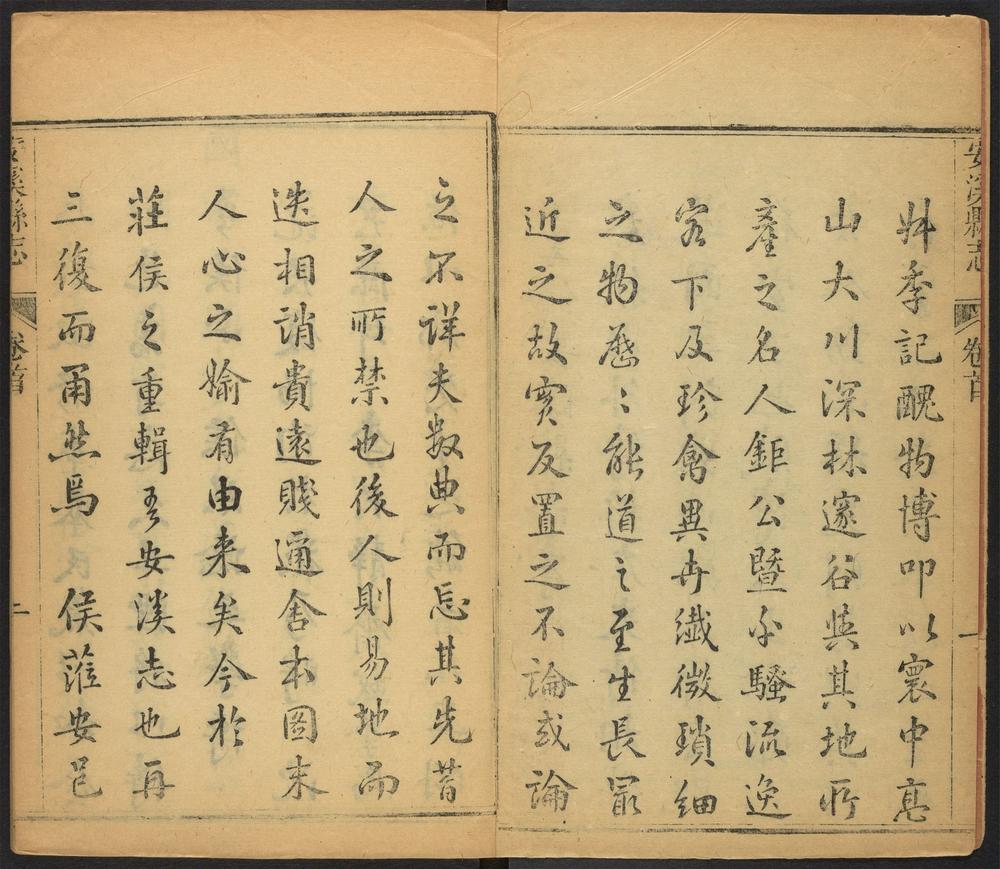 安溪縣志 卷首 一
記醜物博叩以寰中高
山大川深林邃谷與其地所
產之名人鉅公暨騷流逸
客下及珍禽異卉纖微瑣細
之物歷〻能道之至生長最
近之故實反置之不論或論
之不詳夫數典而忘其先昔
人之所禁也後人則易地而
迭相誚貴遠賤邇舍本圖末
人心之媮有由来矣今於
莊侯之重輯吾安溪志也再
三復而然焉 侯蒞安邑
安溪縣志 卷首